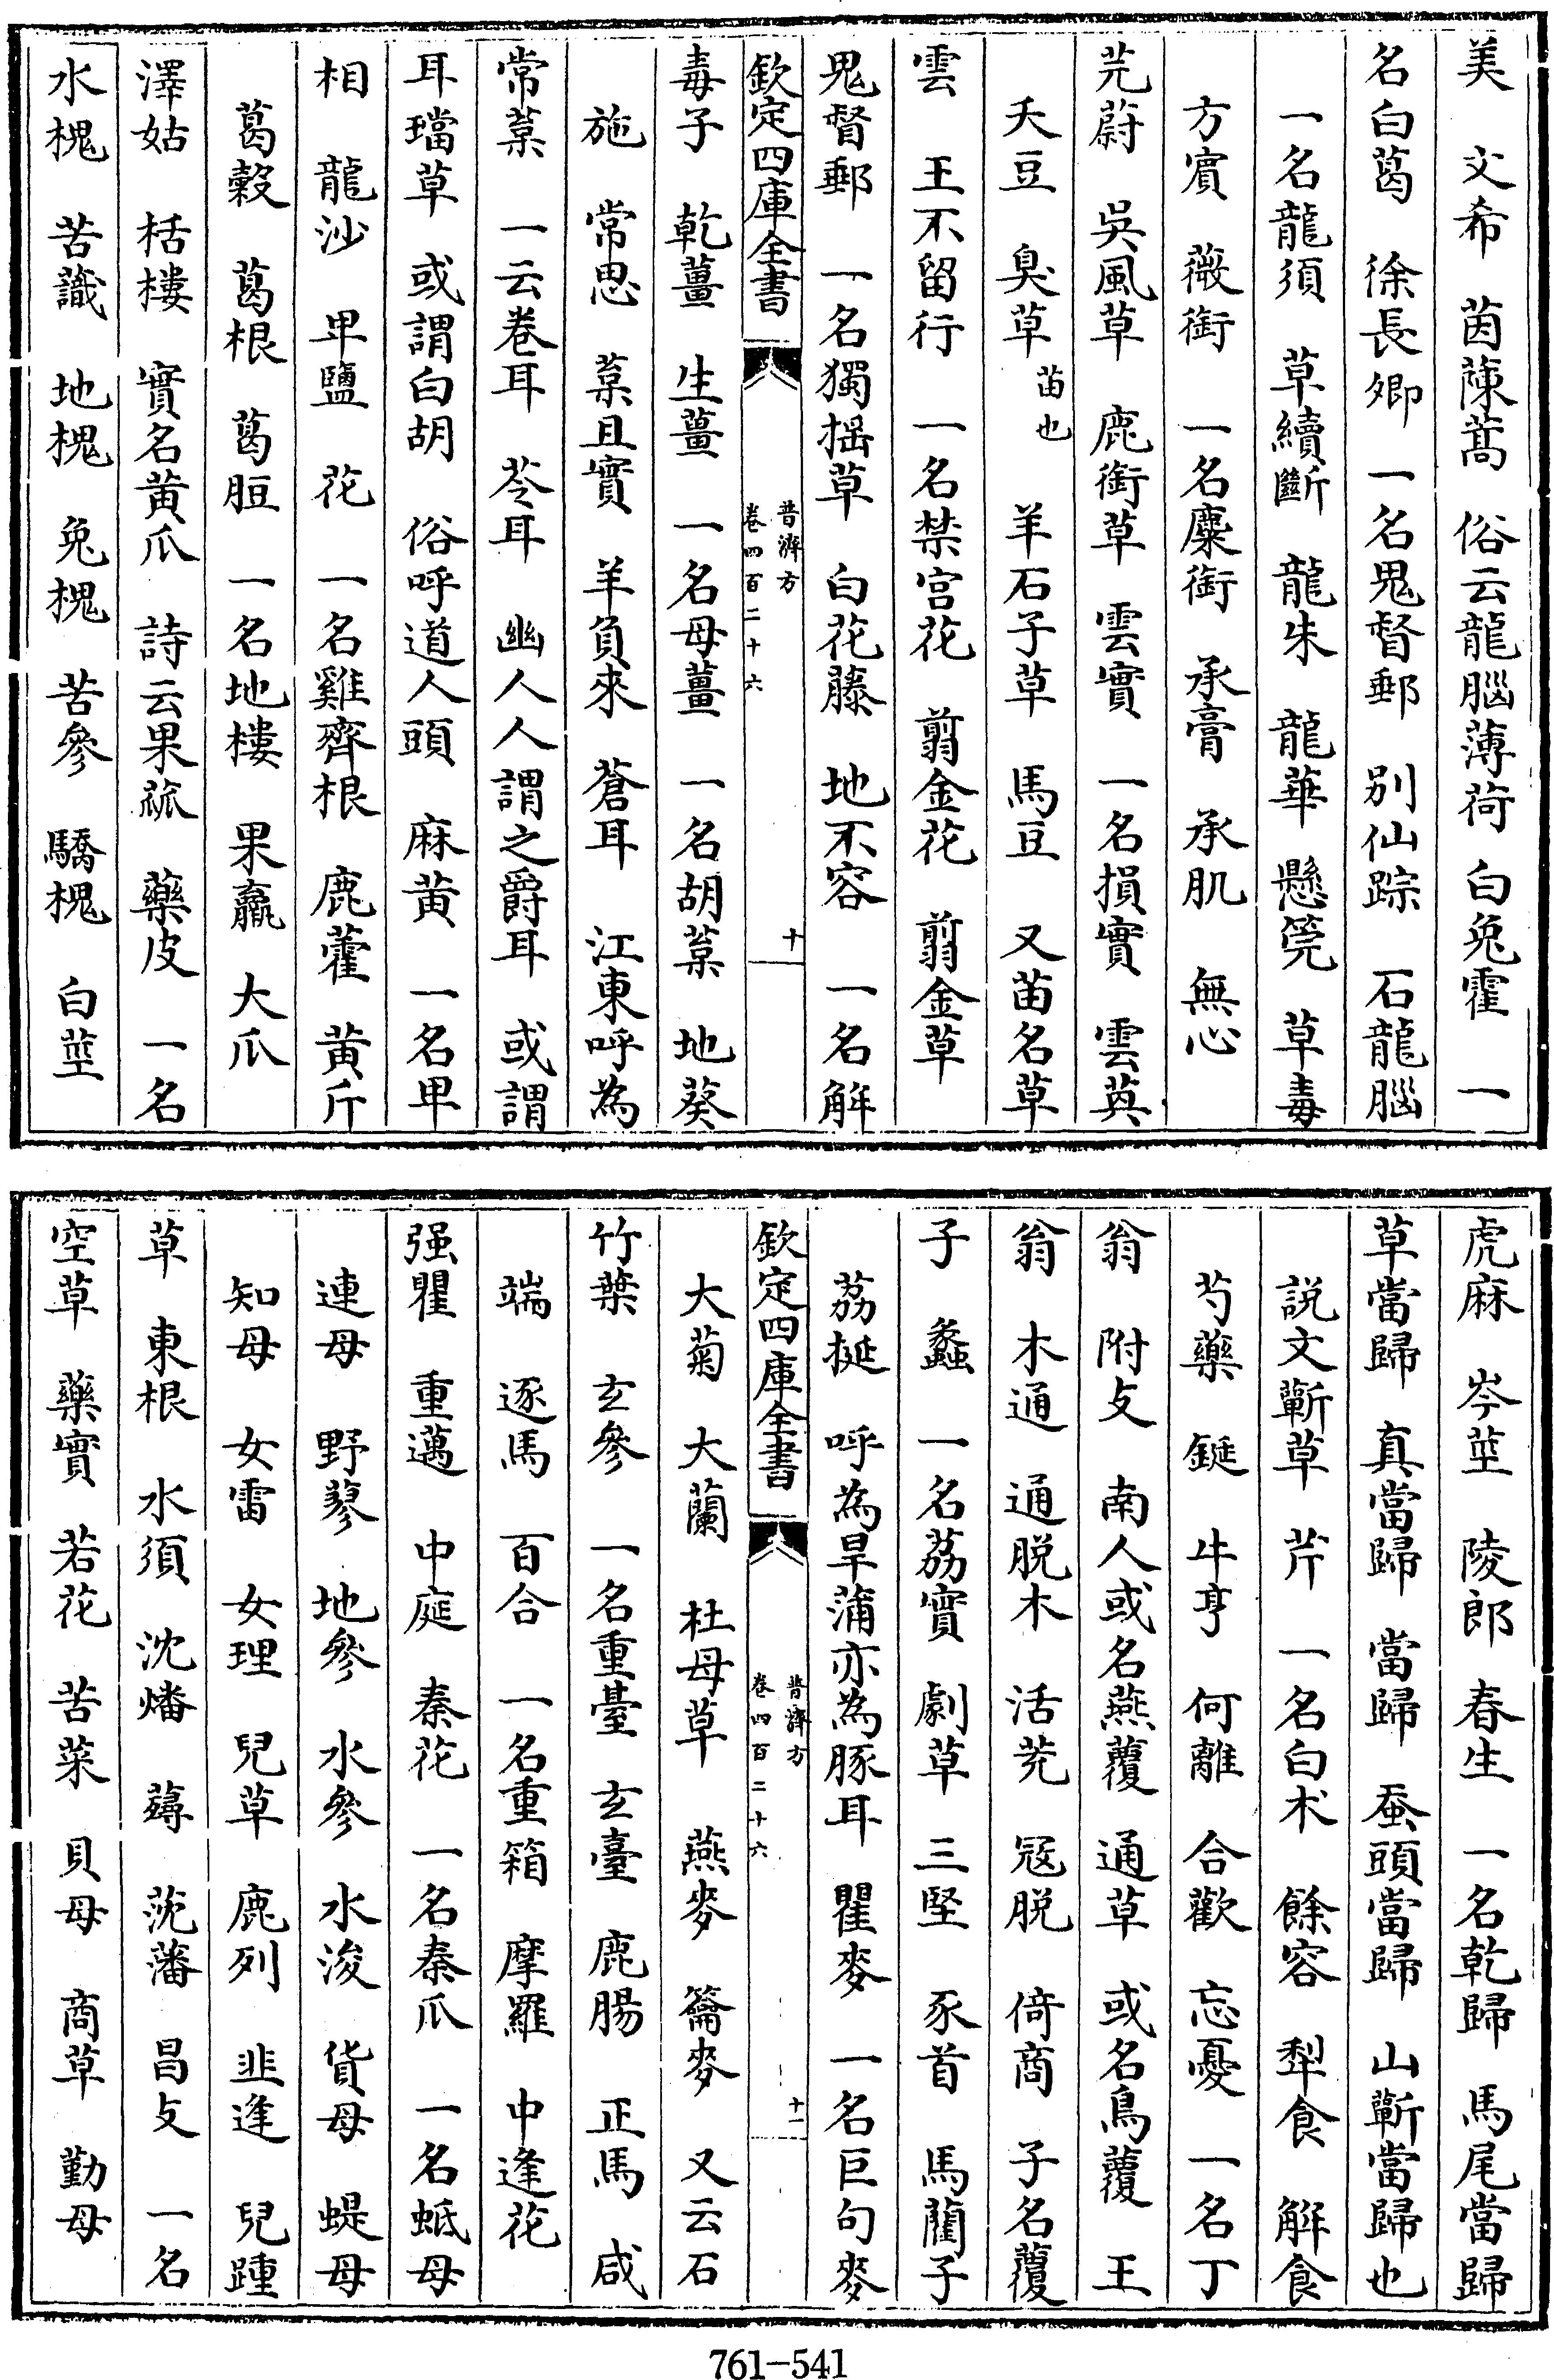 美　文希　茵蔯蒿　俗云龍腦薄荷　白兎霍　一
名白葛　徐長卿　一名鬼督郵　别仙踪　石龍腦
一名龍須　草續斷　龍朱　龍華　懸莞　草毒
方賔　薇銜　一名麋銜　承膏　承肌　無心
茺蔚　吳風草　鹿銜草　雲實　一名損實　雲英
天豆　臭草苗也　羊石子草　馬豆　又苗名草
雲　王不留行　一名禁宫花　翦金花　翦金草
鬼督郵　一名獨摇草　白花藤　地不容　一名解
欽定四庫全書
普濟方
卷四百二十六
十
毒子　乾薑　生薑　一名母薑　一名胡葈　地葵
施　常思　葈且實　羊負來　蒼耳　江東呼為
常葈　一云卷耳　苓耳　幽人人謂之爵耳　或謂
耳璫草　或謂白胡　俗呼道人頭　麻黄　一名卑
相　龍沙　卑鹽　花　一名雞齊根　鹿藿　黄斤
葛榖　葛根　葛脰　一名地樓　果臝　大瓜
澤姑　栝樓　實名黄瓜　詩云果蓏　藥皮　一名
水槐　苦識　地槐　兎槐　苦參　驕槐　白莖
虎麻　岑莖　陵郎　春生　一名乾歸　馬尾當歸
草當歸　真當歸　當歸　蚕頭當歸　山蘄當歸也
説文蘄草　芹　一名白术　餘容　犁食　解食
芍藥　鋋　牛亨　何離　合歡　忘憂　一名丁
翁　附攴　南人或名燕蕧　通草　或名烏蕧　王
翁　木通　通脱木　活莌　冦脱　倚商　子名蕧
子　蠡　一名荔實　劇草　三堅　豕首　馬藺子
荔挻　呼為旱蒲亦為豚耳　瞿麥　一名巨句麥
欽定四庫全書
普濟方
卷四百二十六
十一
大菊　大蘭　杜母草　燕麥　籥麥　又云石
竹葉　玄參　一名重臺　玄臺　鹿腸　正馬　咸
端　逐馬　百合　一名重箱　摩羅　中逢花
强瞿　重邁　中庭　秦花　一名秦瓜　一名蚳母
連母　野蓼　地參　水參　水浚　貨母　蝭母
知母　女雷　女理　兒草　鹿列　韭逢　兒踵
草　東根　水須　沈燔　薚　莐藩　昌攴　一名
空草　藥實　若花　苦菜　貝母　商草　勤母
761—541